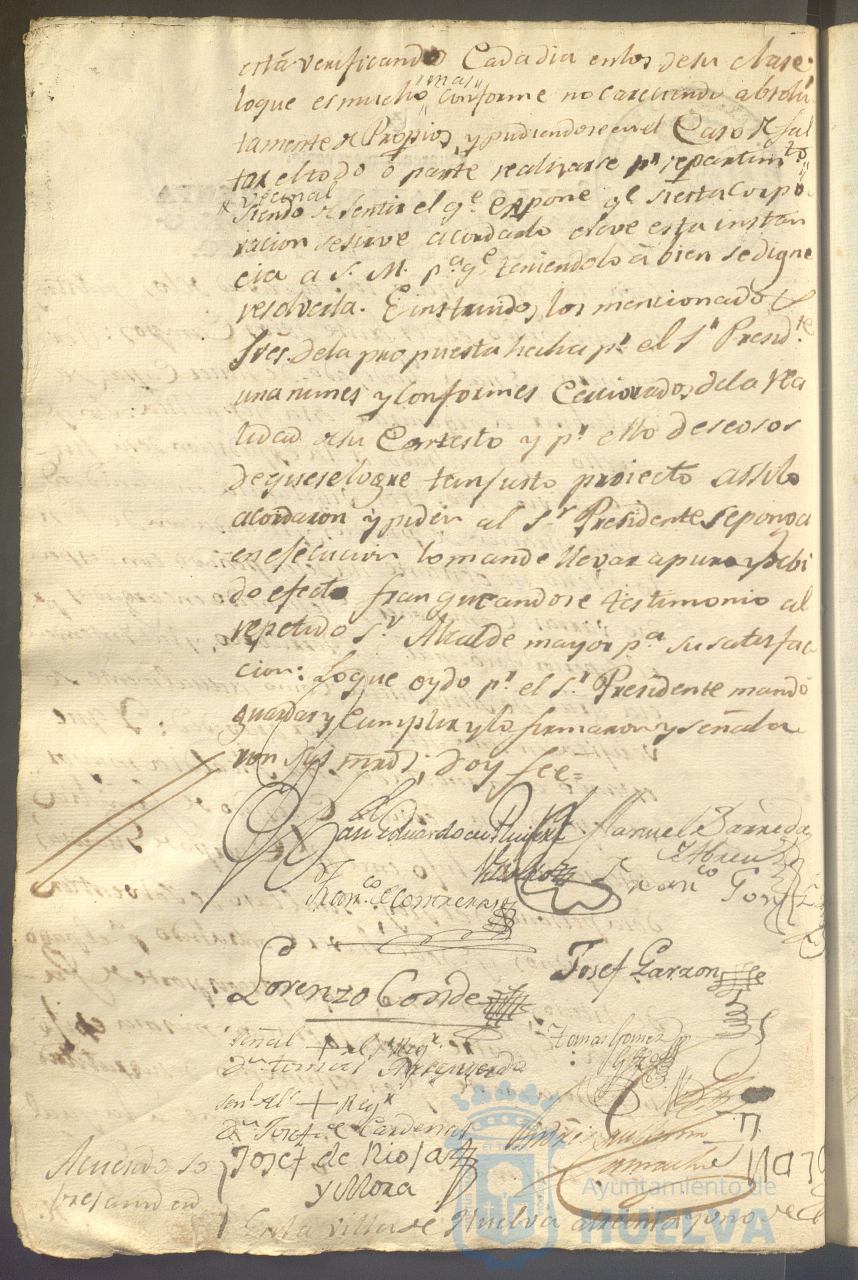 está verificando Cada dia en los de su clase:
loque es mucho "mas" conforme no careciendo absolu
tamente de Propios, y pudiendose en el Caso de fal
tar el todo ó parte realizarse pr. repartimto.
x vecinal
siendo de sentir el qe. expone qe. si esta Corpo
racion se sirve acordarlo eleve esta instan
cia a S. M. pa. qe. teniendolo á bien se digne
resolverla. E instruidos los mencionados
Sres. dela propuesta hecha pr. el Sr. Presidte.
unanimes y Conformes Cerciorados de la rea
lidad de su Contesto y pr. ello deseosos
de que se logre tan justo proiecto assi lo
acordaron y piden al Sr. Presidente se ponga
en esecucion lo mande llevar a puro y debi
do efecto franqueandose testimonio al
repetido Sr. Alcalde mayor pa. su satisfac
cion: Loque oydo pr. el Sr. Presidente mandó
guardar y Cumplir y lo firmaron y señala
ron sus mrds; doy fee=
Eduardo Manuel Barreda
y Abreu
Franco. de Contreras Franco.
Lorenzo Conde Josef Garzon
Señal + del Regr. Tomas Gomez
Dn. Tomas
Señal + Regr.
Dn. Josef de Cardenas
Josef de Rioja
y Mora
Camacho
Acuerdo so
bre
En la villa de Huelva a treinta y uno de
Ayuntamiento de
HUELVA